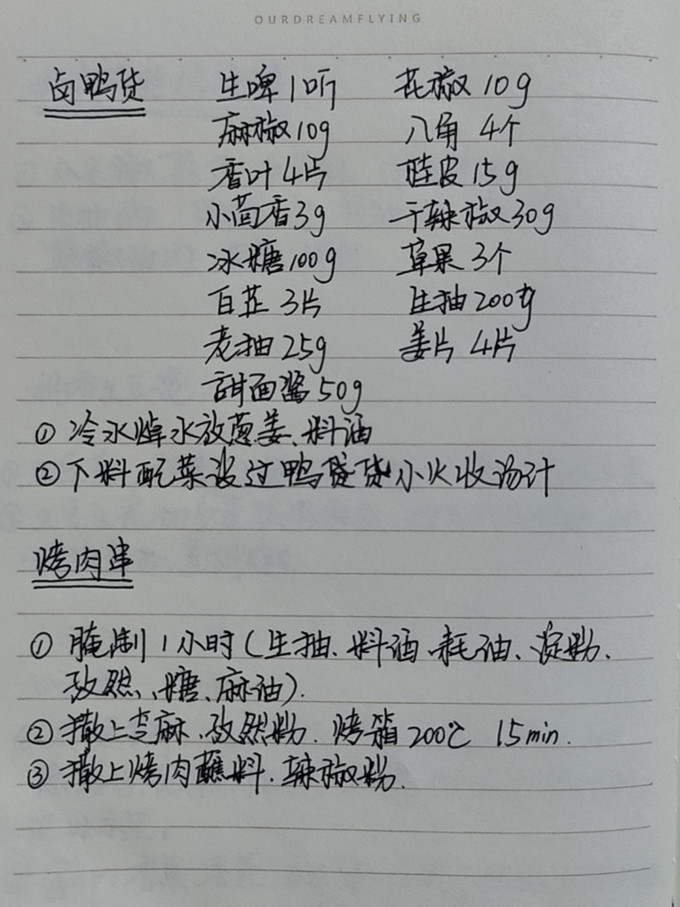 OURDREAMFLYING
卤鸭货 生啤1听 花椒10g
麻椒10g 八角 4个
香叶4片 桂皮15g
小茴香3g 干辣椒30g
冰糖100g 草果3个
白芷 3片 生抽200g
老抽25g 姜片 4片
甜面酱50g
① 冷水焯水放葱姜、料酒
② 下料配菜没过鸭货 小火收汤汁
烤肉串
① 腌制1小时(生抽、料酒、耗油、淀粉、
孜然、糖、麻油).
② 撒上芝麻、孜然粉. 烤箱200℃ 15min.
③ 撒上烤肉蘸料.辣椒粉.